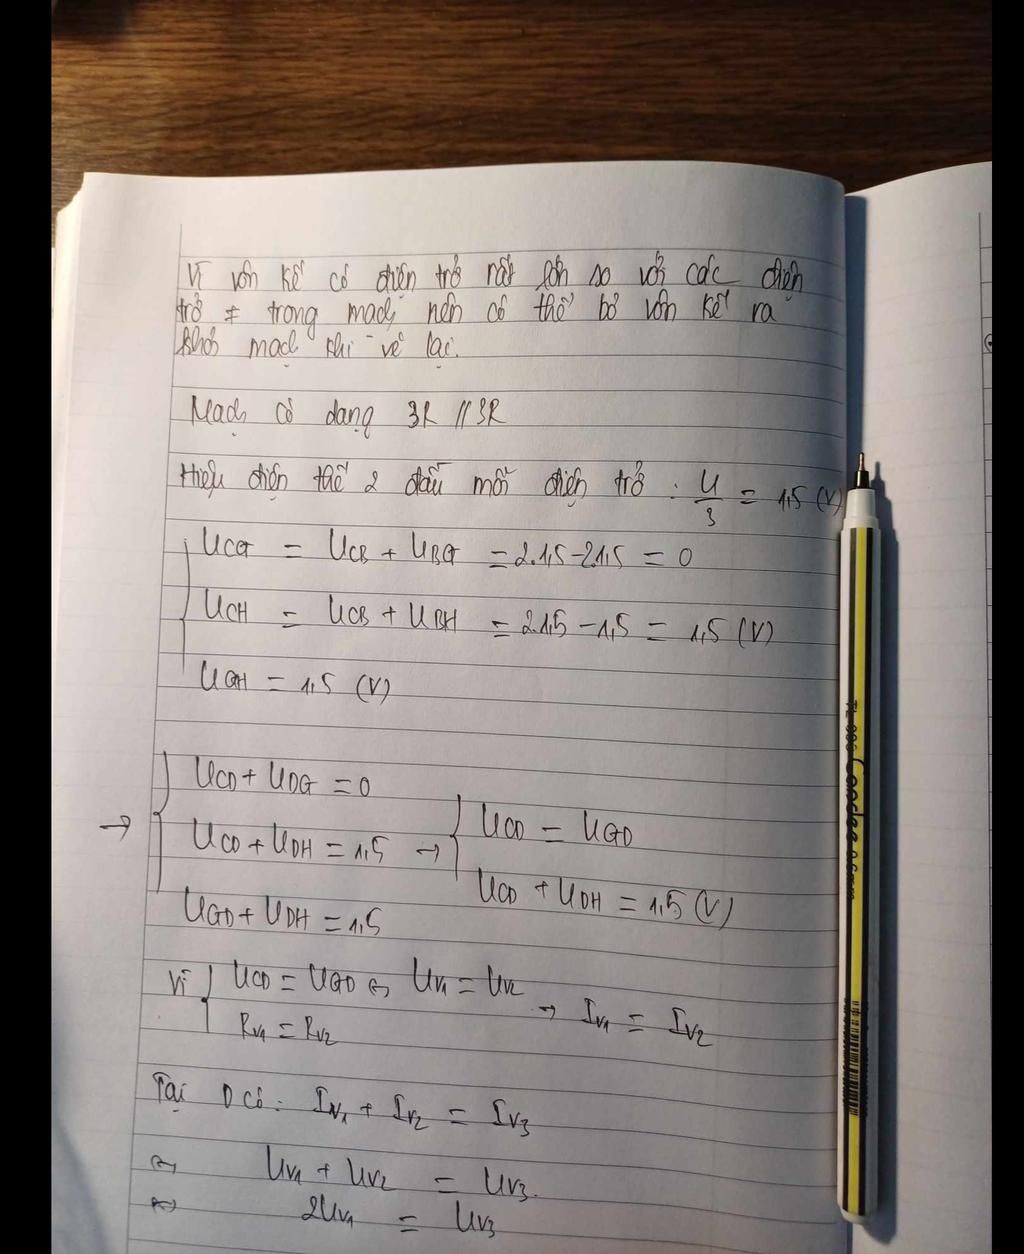 Vì vôn kế có điện trở rất lớn so với các điện
trở ≠ trong mạch nên có thể bỏ vôn kế ra
khỏi mạch khi vẽ lại.
Mạch có dạng 3R // 3R
Hiệu điện thế 2 đầu mỗi điện trở : U/3 = 1,5 (V)
UCG = UCB + UBG = 2.1,5 - 2.1,5 = 0
UCH = UCB + UBH = 2.1,5 - 1,5 = 1,5 (V)
UGH = 1,5 (V)
UCD + UDG = 0
→ UCD + UDH = 1,5 → UCD = UGD
UCD + UDH = 1,5 (V)
UGD + UDH = 1,5
Vì UCD = UGD ⇔ UV1 = UV2
RV1 = RV2 → IV1 = IV2
Tại D có: IV1 + IV2 = IV3
⇔ UV1 + UV2 = UV3.
⇔ 2UV1 = UV3